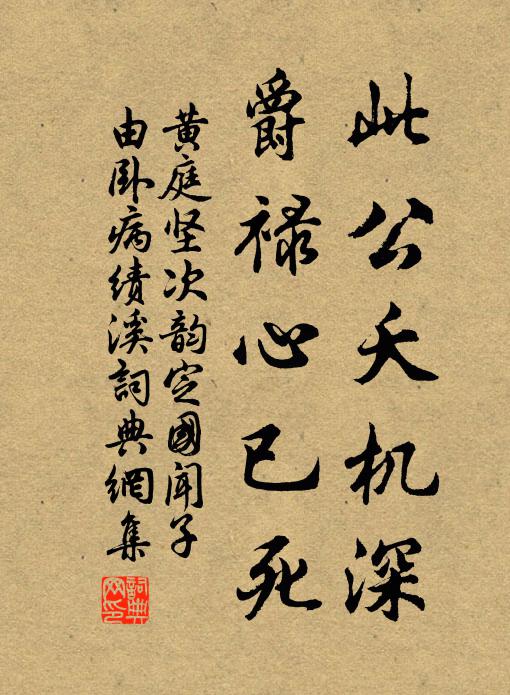 此公天机深
爵禄心已死
黄庭坚次韵定國闻子
由卧病绩溪詞典網集
詞典网印